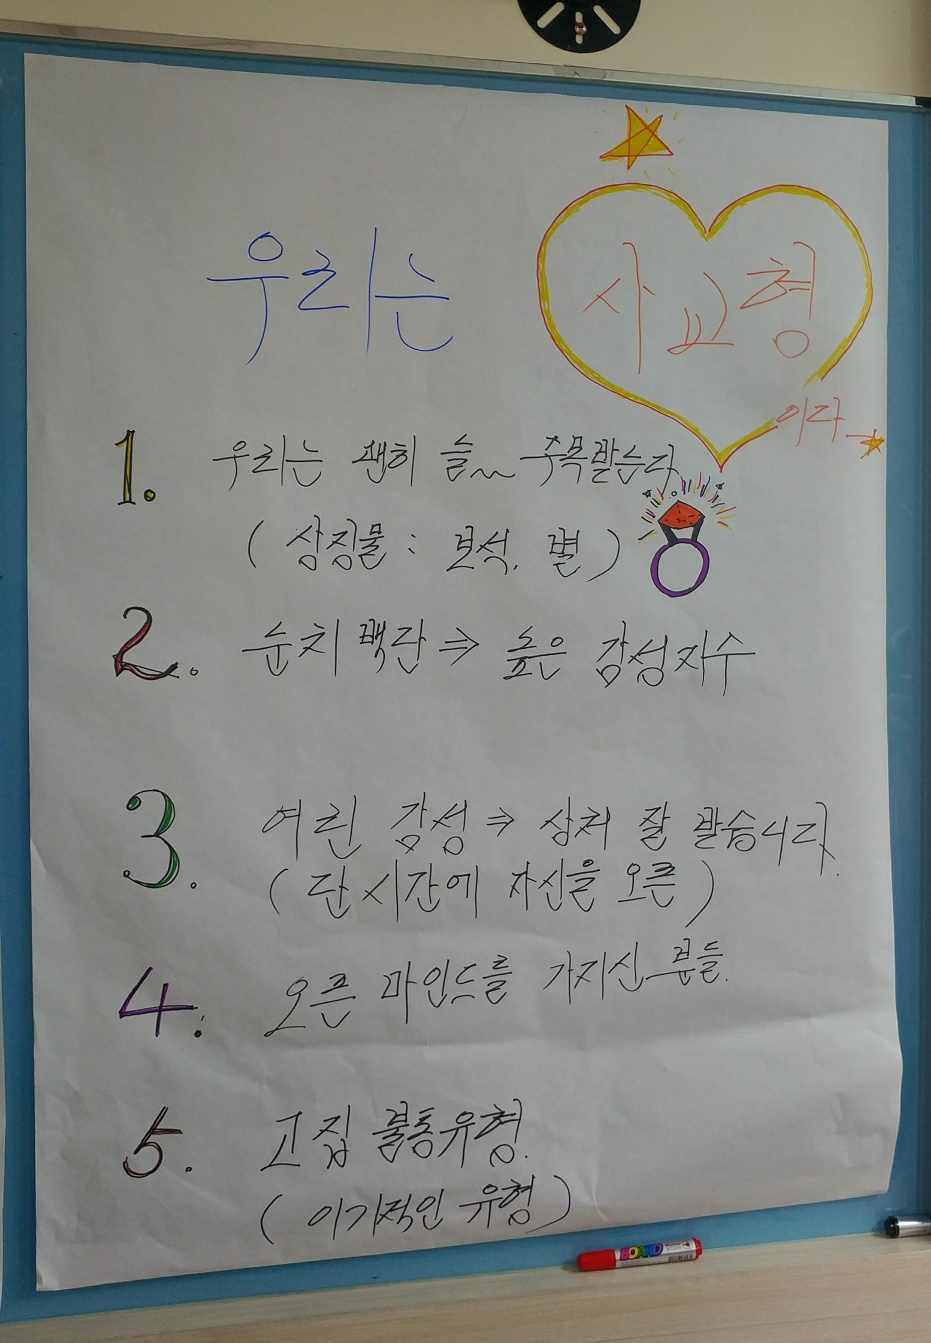 우리는 사교형
이다
1. 우리는 괜히 슬~ 주목받는다
( 상징물 : 보석, 별 )
2. 눈치백단 ⇒ 높은 감성지수
3. 여린 감성 ⇒ 상처 잘 받습니다.
( 단시간에 자신을 오픈 )
4. 오픈 마인드를 가지신 분들.
5. 고집 불통유형.
( 이기적인 유형 )
BOARD